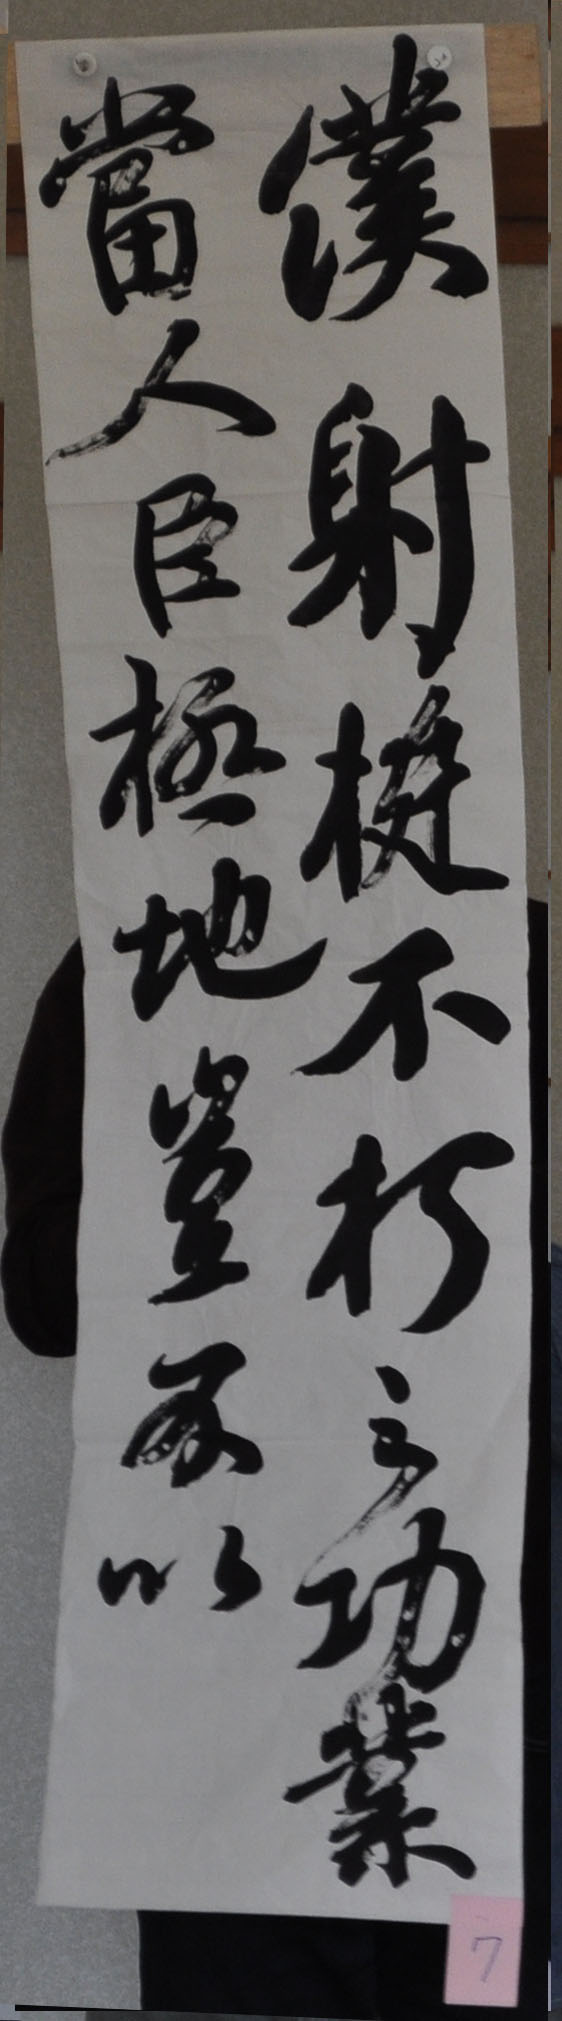 僕射挺不朽之功業
當人臣極地豈不以
7